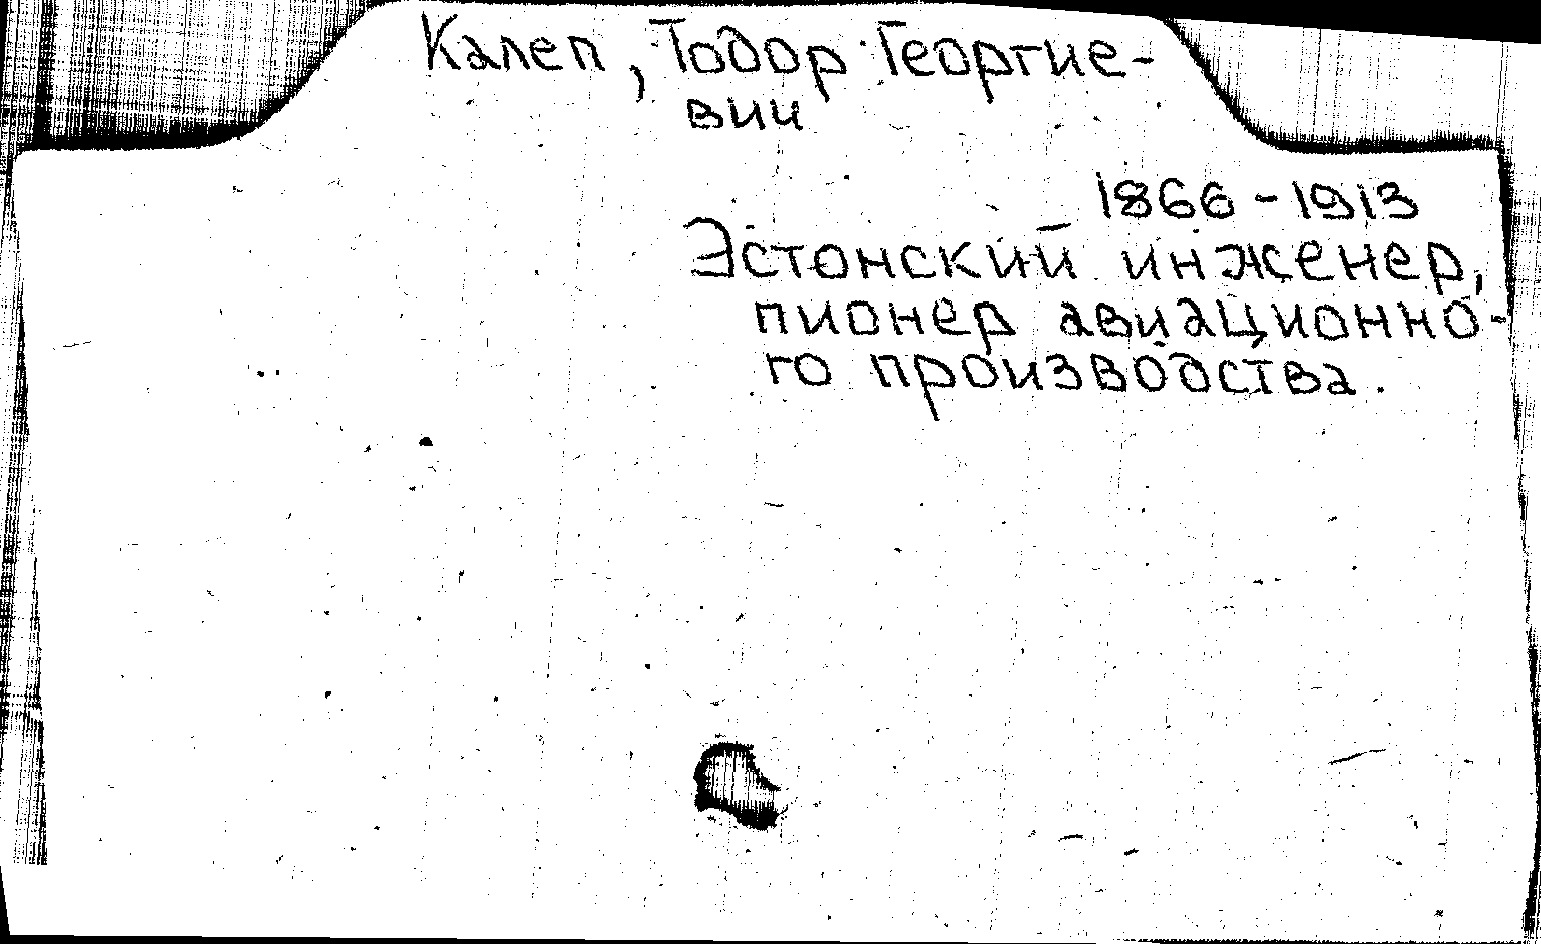 Калеп, Тодор Георгие-
вич
1866-1913
Эстонский инженер,
пионер авиационно-
го производства.